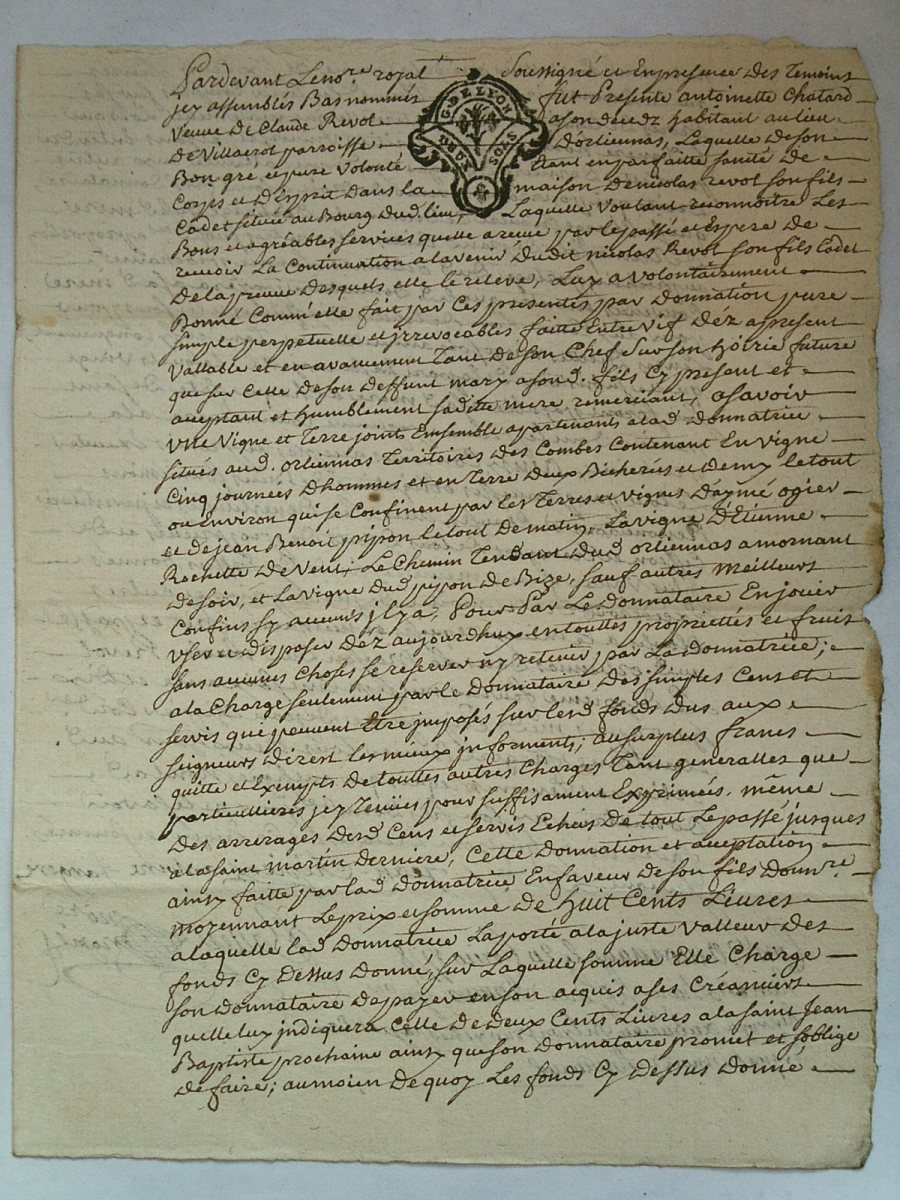 Pardevant Leno.re royal Soussigné et Enpresence Des Temoins
jcy assemblés Bas nommés fut Presente antoinette Chatard
Veuve De Claude Revol ason decez habitant au lieu
De Villacrol parroisse D'orliennas, Laquelle Deson
Bon gré et pure Volonté Etant en parfaitte santé De
Corps et D'Esprit Dans La maison Denicolas revol son fils
Cadet située au Bourg dud. lieu, Laquelle Voulant reconnoitre Les
Bons et agréables services quelle a receue par le passé et Espere De
recevoir La Continuation a lavenir Dudit nicolas Revol son fils Cadet
De la preuve Desquels elle le releve, Luy a volontairement
Donné Comm'elle fait par Ces presentes par Donnation pure
simple perpetuelle et jrrevocables faitte Entre vif Déz apresent
Vallable et en avancement Tant De son Chef sur son hoirie future
que sur Celle de son Deffunt mary a sond. fils Cy present et
acceptant et humblement sadite mere remerciant, asavoir
vne Vigne et Terre joints Ensemble apartenants alad. Donnatrice
situés aud. orliennas Territoires Des Combes Contenant En vigne
Cinq journées Dhommes et en Terre Deux Bicherées et Demy le tout
ou Environ qui se Confinent par les Terres et vignes D'aymé ogier
et de jean Benoit pipon le tout De matin, La vigne D'Etienne
Rochette De Vent, Le Chemin Tendant Dud. orliennas a mornant
De soir, et La vigne Dud. pipon De Bize, sauf autres meilleurs
Confins sy aucuns jl y a, Pour Par Le Donnataire En jouir
vser et Disposer Déz aujourdhuy en touttes propriettés et fruits
sans aucunes Choses se reserver ny retenir par La Donnatrice;
a la Charge seulement par le Donnataire Des simples Cens et
servis qui peuvent Etre jmposés sur lesd. fonds Dus aux
seigneurs Direct les mieux jnforments; au surplus francs
quitte et Exempts De touttes autres Charges Tant generalles que
particullieres jcy Tenües pour suffisament Exprimées, même
Des arrerages Desd. Cens et servis Echeus De tout Le passé jusques
a la saint martin Derniere, Cette Donnation et acceptation
ainsy faitte par lad. Donnatrice En faveur De son fils Donn.re
moyennant Le prix et somme De huit Cents Livres
a laquelle lad. Donnatrice La porté a la juste valleur Des
fonds Cy Dessus Donné, sur Laquelle somme Elle Charge
son Donnataire De payer en son acquis a ses Créanciers
quelle luy jndiquera Celle De Deux Cents Livres a la saint Jean
Baptiste prochaine ainsy que son Donnataire promet et soblige
De faire; au moien De quoy Les fonds Cy Dessus Donné
G. DE LYON
QUATRE SOLS